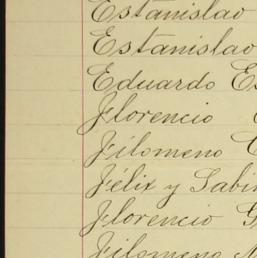 Estanislao
Estanislao
Eduardo Es
Florencio
Filomeno C
Félix y Sabin
Florencio G
Filomeno M